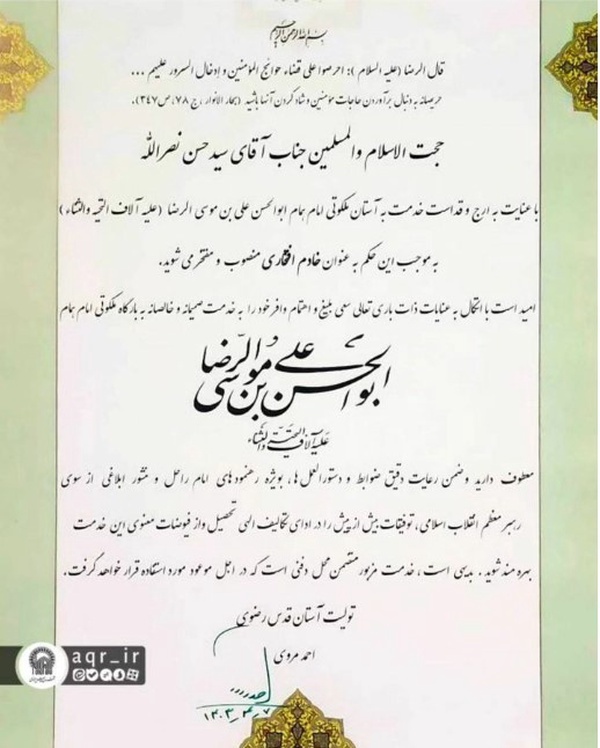 بسم الله الرحمن الرحیم
قال الرضا (علیه السلام): احرصوا علی قضاء حوائج المؤمنین و ادخال السرور علیهم ...
حریصانه به دنبال برآوردن حاجات مؤمنین و شاد کردن آنها باشید (بحار الانوار، ج ۷۸، ص ۳۴۷).
حجت الاسلام والمسلمین جناب آقای سید حسن نصرالله
با عنایت به ارج و قداست خدمت به آستان ملکوتی امام همام ابوالحسن علی بن موسی الرضا (علیه آلاف التحیه والثناء)
به موجب این حکم به عنوان خادم افتخاری منصوب و مفتخر می شوید.
امید است با اتکال به عنایات ذات باری تعالی سعی بلیغ و اهتمام وافر خود را به خدمت صمیمانه و خالصانه به بارگاه ملکوتی امام همام
ابوالحسن علی بن موسی الرضا
علیه آلاف التحیة والثناء
معطوف دارید و ضمن رعایت دقیق ضوابط و دستورالعمل ها، بویژه رهنمودهای امام راحل و منشور ابلاغی از سوی
رهبر معظم انقلاب اسلامی، توفیقات بیش از پیش را در ادای تکالیف الهی تحصیل و از فیوضات معنوی این خدمت
بهره مند شوید. بدیهی است، خدمت مزبور متضمن محل دفنی است که در اجل موعود مورد استفاده قرار خواهد گرفت.
تولیت آستان قدس رضوی
احمد مروی
۱۴۰۳_۴_۷
aqr_ir